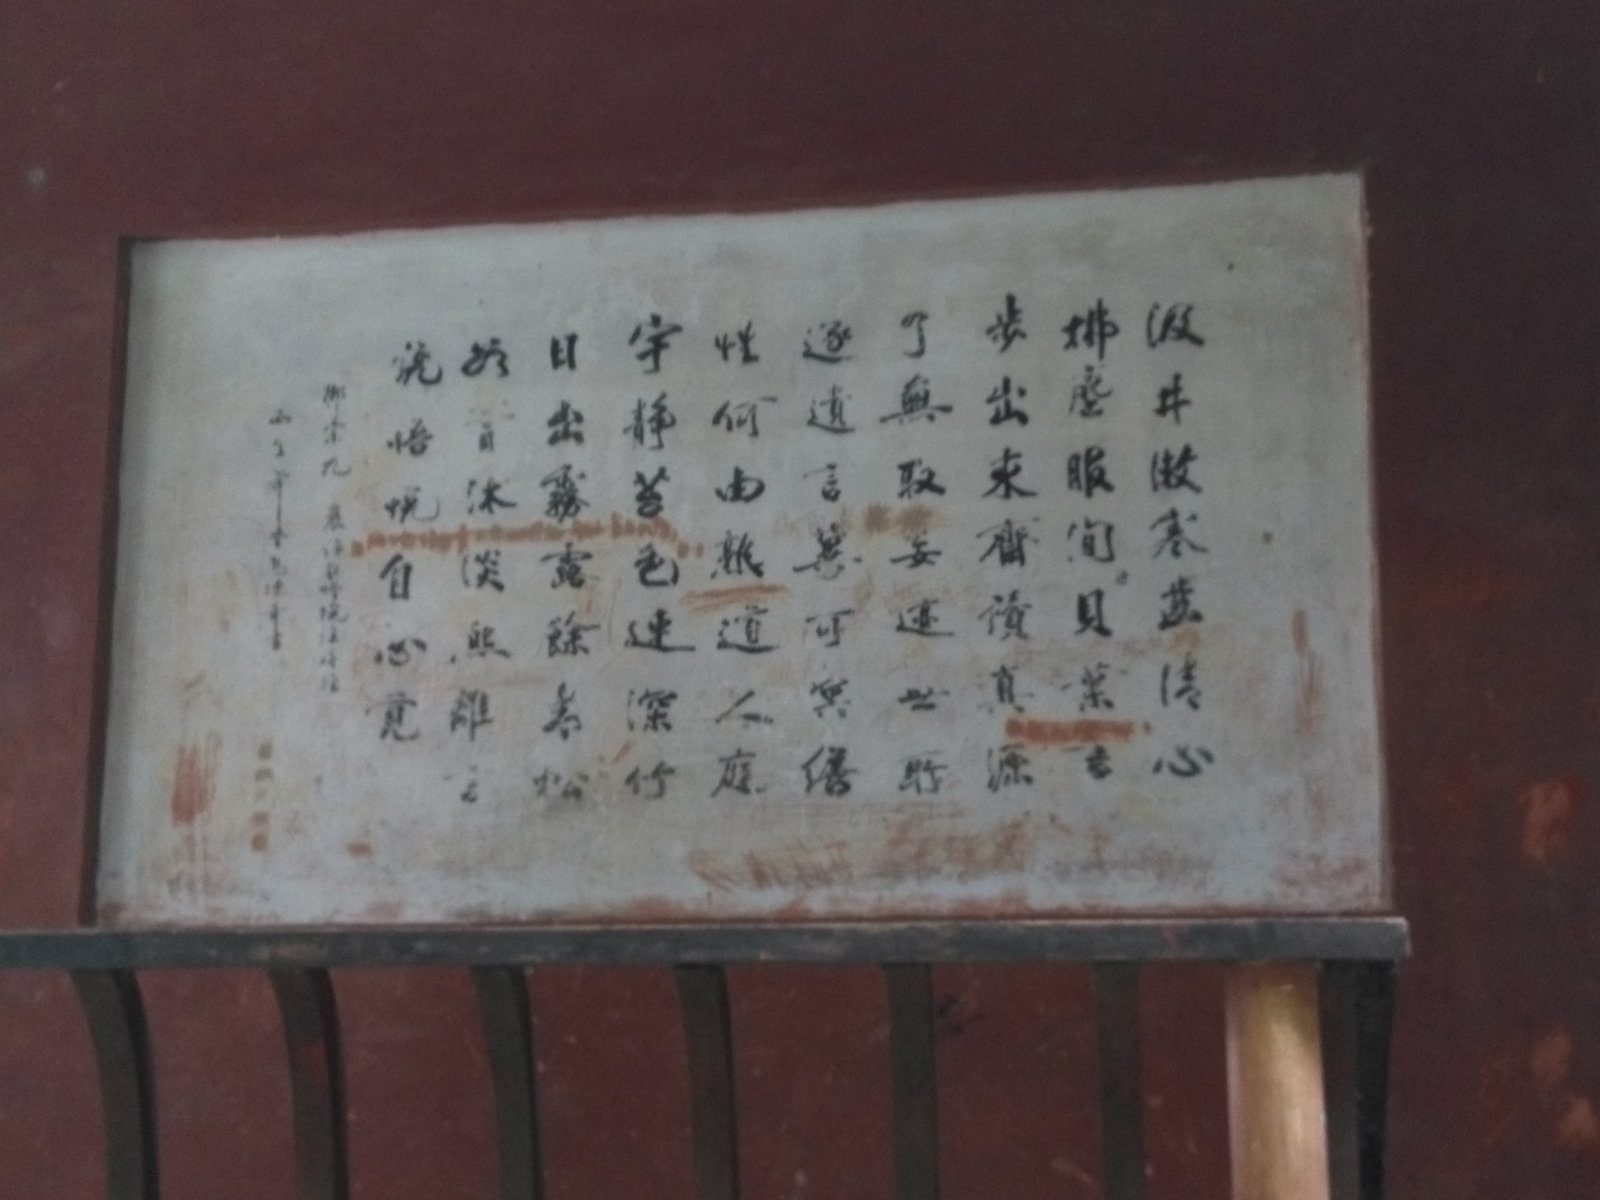 汲井漱寒齒清心
拂塵服閒貝葉書
步出東齋讀真源
了無取妄迹世所
逐遺言冀可冥繕
性何由熟道人庭
宇靜苔色連深竹
日出霧露餘青松
如膏沐淡然離言
說悟悅自心
柳宗元 晨詣超師院讀禪經